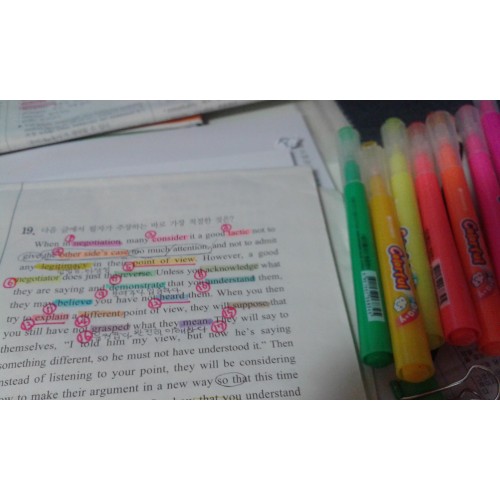 19. 다음 글에서 필자가 주장하는 바로 가장 적절한 것은?
When in negotiation, many consider it a good tactic not to
give the other side's case too much attention, and not to admit
any legitimacy in their point of view. However, a good
negotiator does just the reverse. Unless you acknowledge what
they are saying and demonstrate that you understand them,
they may believe you have not heard them. When you then
try to explain a different point of view, they will suppose that
you still have not grasped what they mean. They will say to
themselves, "I told him my view, but now he's saying
something different, so he must not have understood it." Then
instead of listening to your point, they will be considering
how to make their argument in a new way so that this time
that you understand
Colorful
Colorful